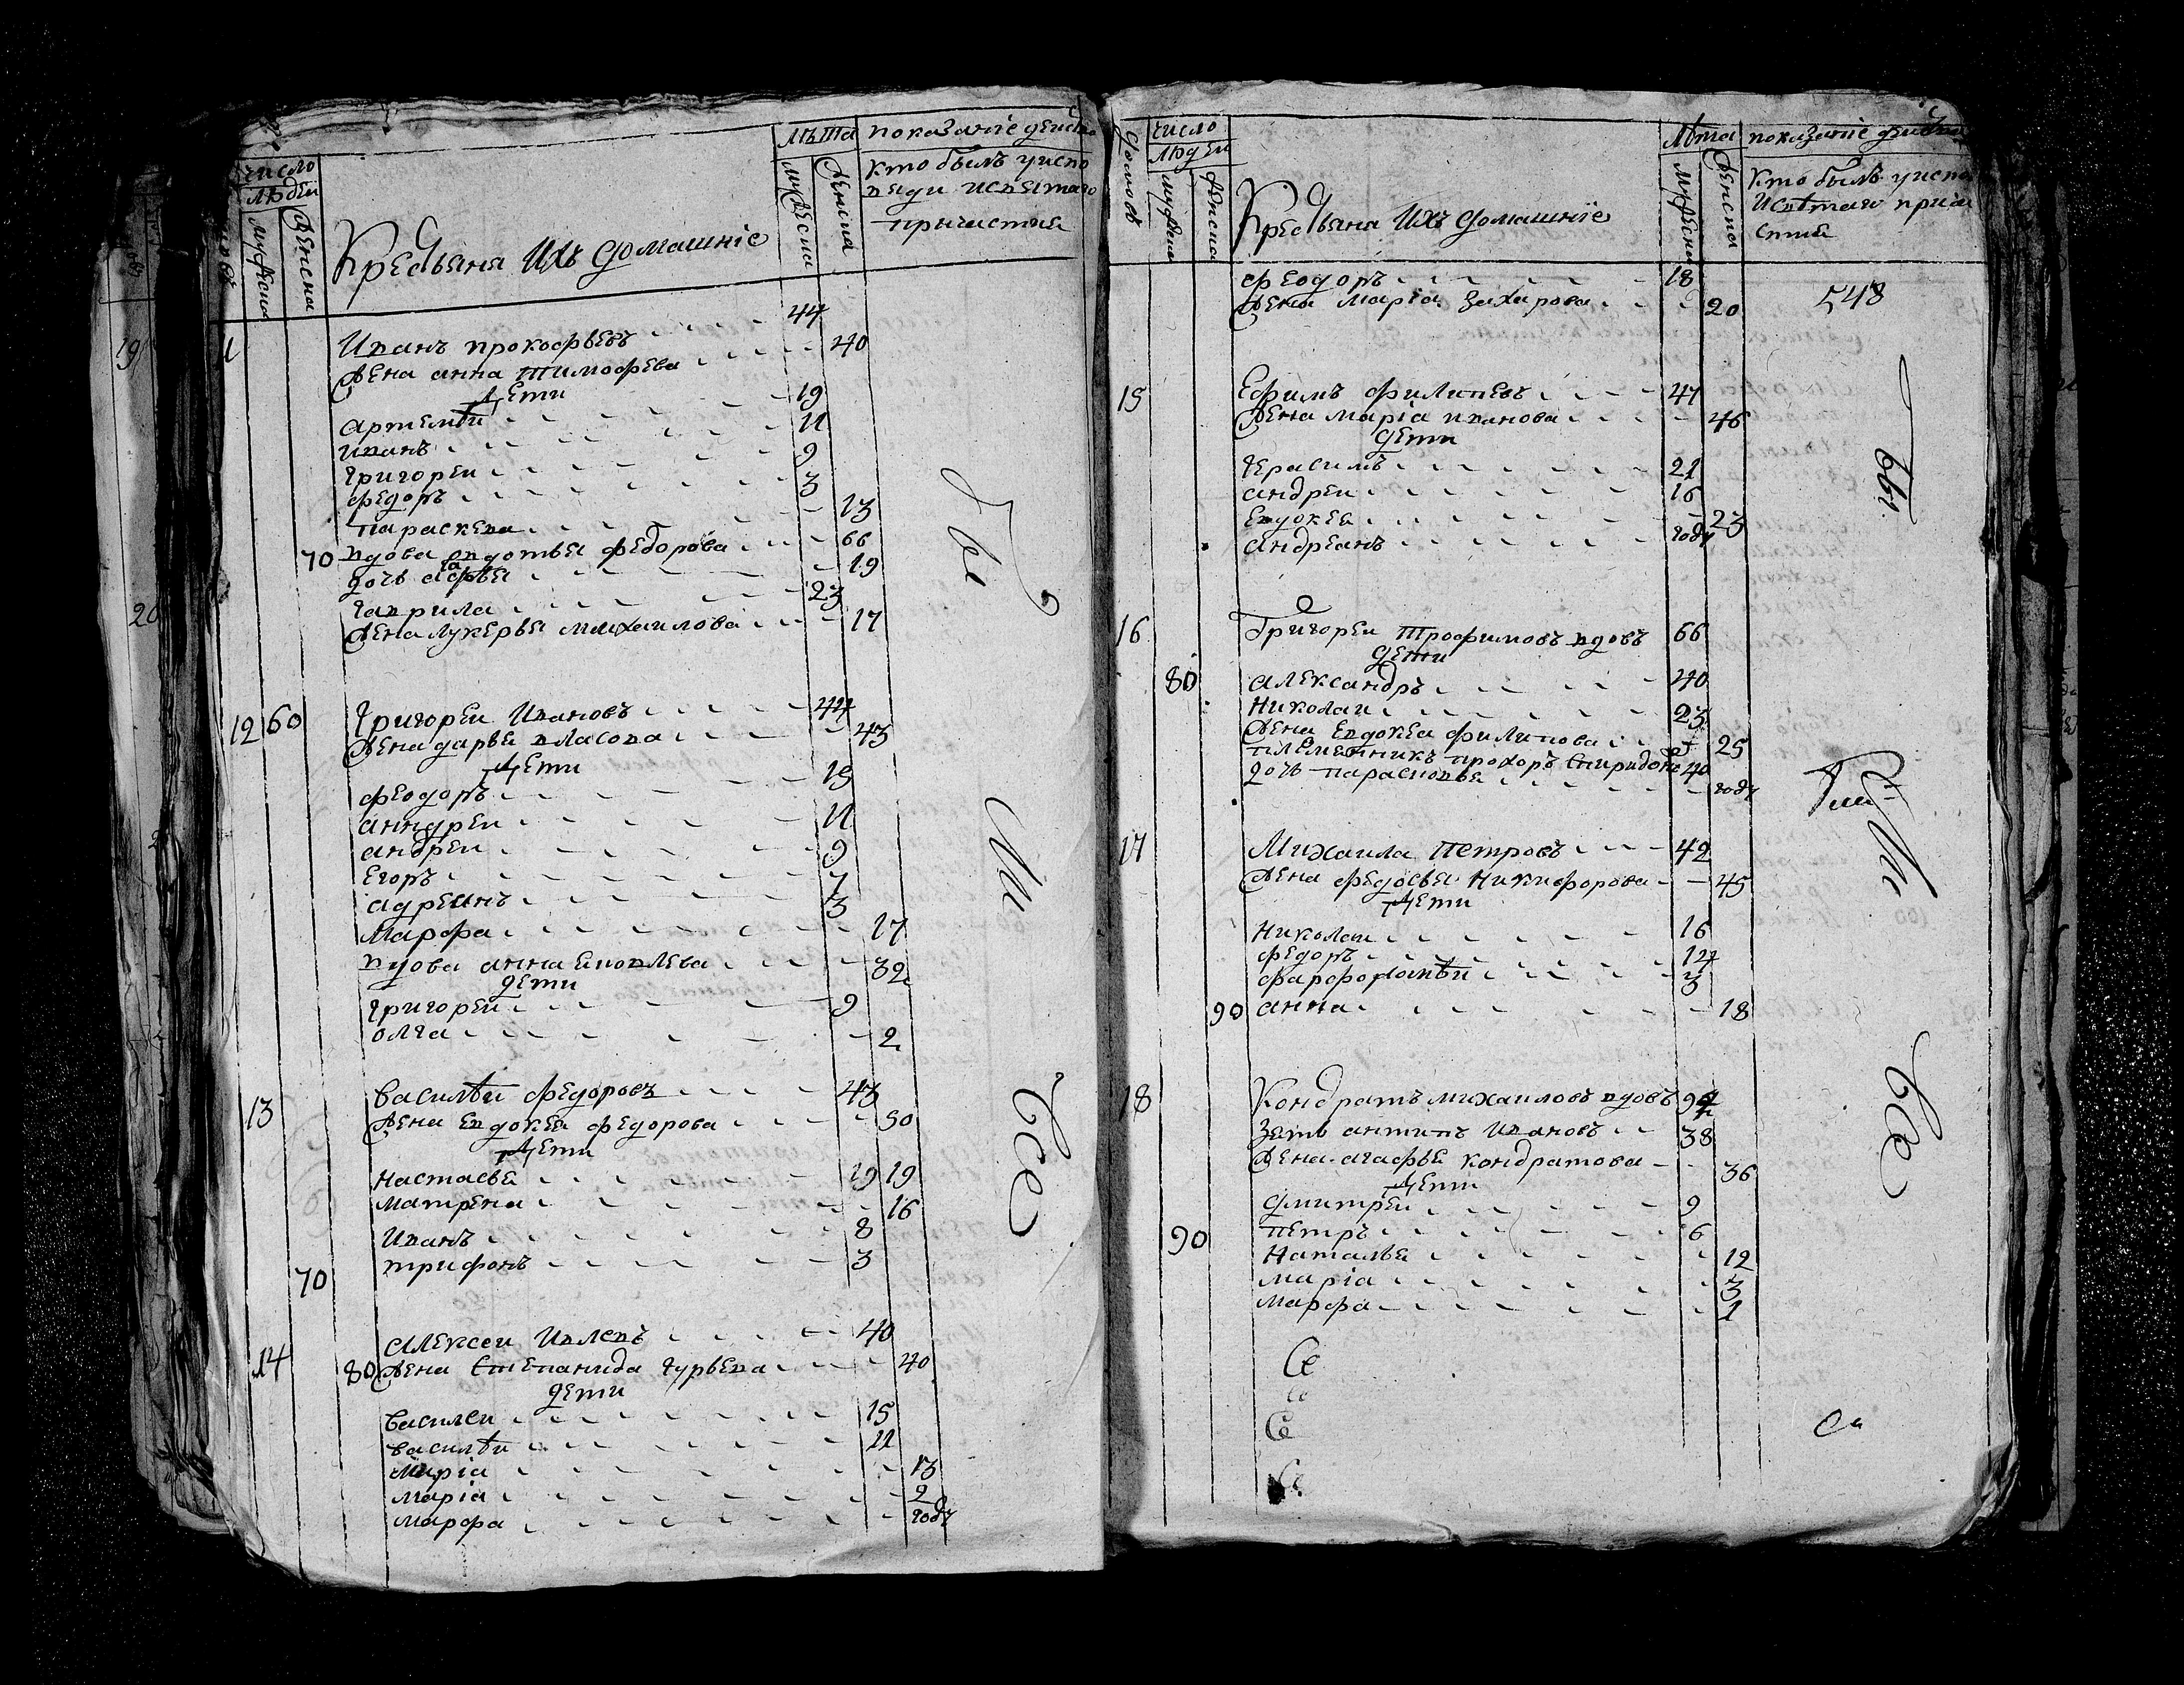 лѣта показание действа
число людеи
мужеска женска
Крестьяня Ихъ домашние
мужеска женска
кто былъ у испо
веди и святаго
причастия
11 Иванъ прокофьевъ 44
жена анна тимофева 40
дети
артемѣи 19
иванъ 11
григореи 9
федоръ 3
параскева 13
70 вдова авдотья федорова 66
дочь агафья 19
гаврила 23
жена лукерья михаилова 17
12 60 григореи Ивановъ 44
жена дарья власова 43
дети
феодоръ 15
андреи 11
андреи 9
Егоръ 7
адреянъ 3
Марфа 17
вдова анна 32
дети
григореи 9
олга 2
13 василѣи федоровъ 43
жена Евдокея федорова 50
дети
настасья 19 19
матрена 16
Иванъ 8
трифонъ 3
70
14 алексеи Ивлевъ 40
80 жена степанида гурьева 40
дети
василеи 15
василѣи 11
мариа 13
мариа 2
марфа году
Бы
Ли
Все
домовъ число людеи
мужеска женска
Крестьяня Ихъ домашние
лѣта мужеска женска
показание действа
кто былъ у испо
И святаго прича
стия
феодоръ 18
жена мариа захарова 20
548
15 Ефимъ филипевъ 47
жена мариа иванова 46
дети
герасимъ 21
андреи 16
Евдокея 23
андреянъ году
16 Григореи трофимовъ вдовъ 66
дети
80 александръ 40
николаи 23
жена Евдокея филипова 25
племенникъ прохоръ спиридоновъ 40
дочь парасковья году
17 Михаила петровъ 42
жена федосья никифорова 45
дети
николаи 16
федоръ 14
фарфоломѣи 3
90 анна 18
18 Кондратъ михаиловъ вдовъ
зять антипъ Ивановъ 38
жена агафья кондратова 36
дети
дмитреи 9
90 петръ 6
наталья 12
мариа 3
марфа 1
Бы
Ли
Все
Се
се
Се
Се